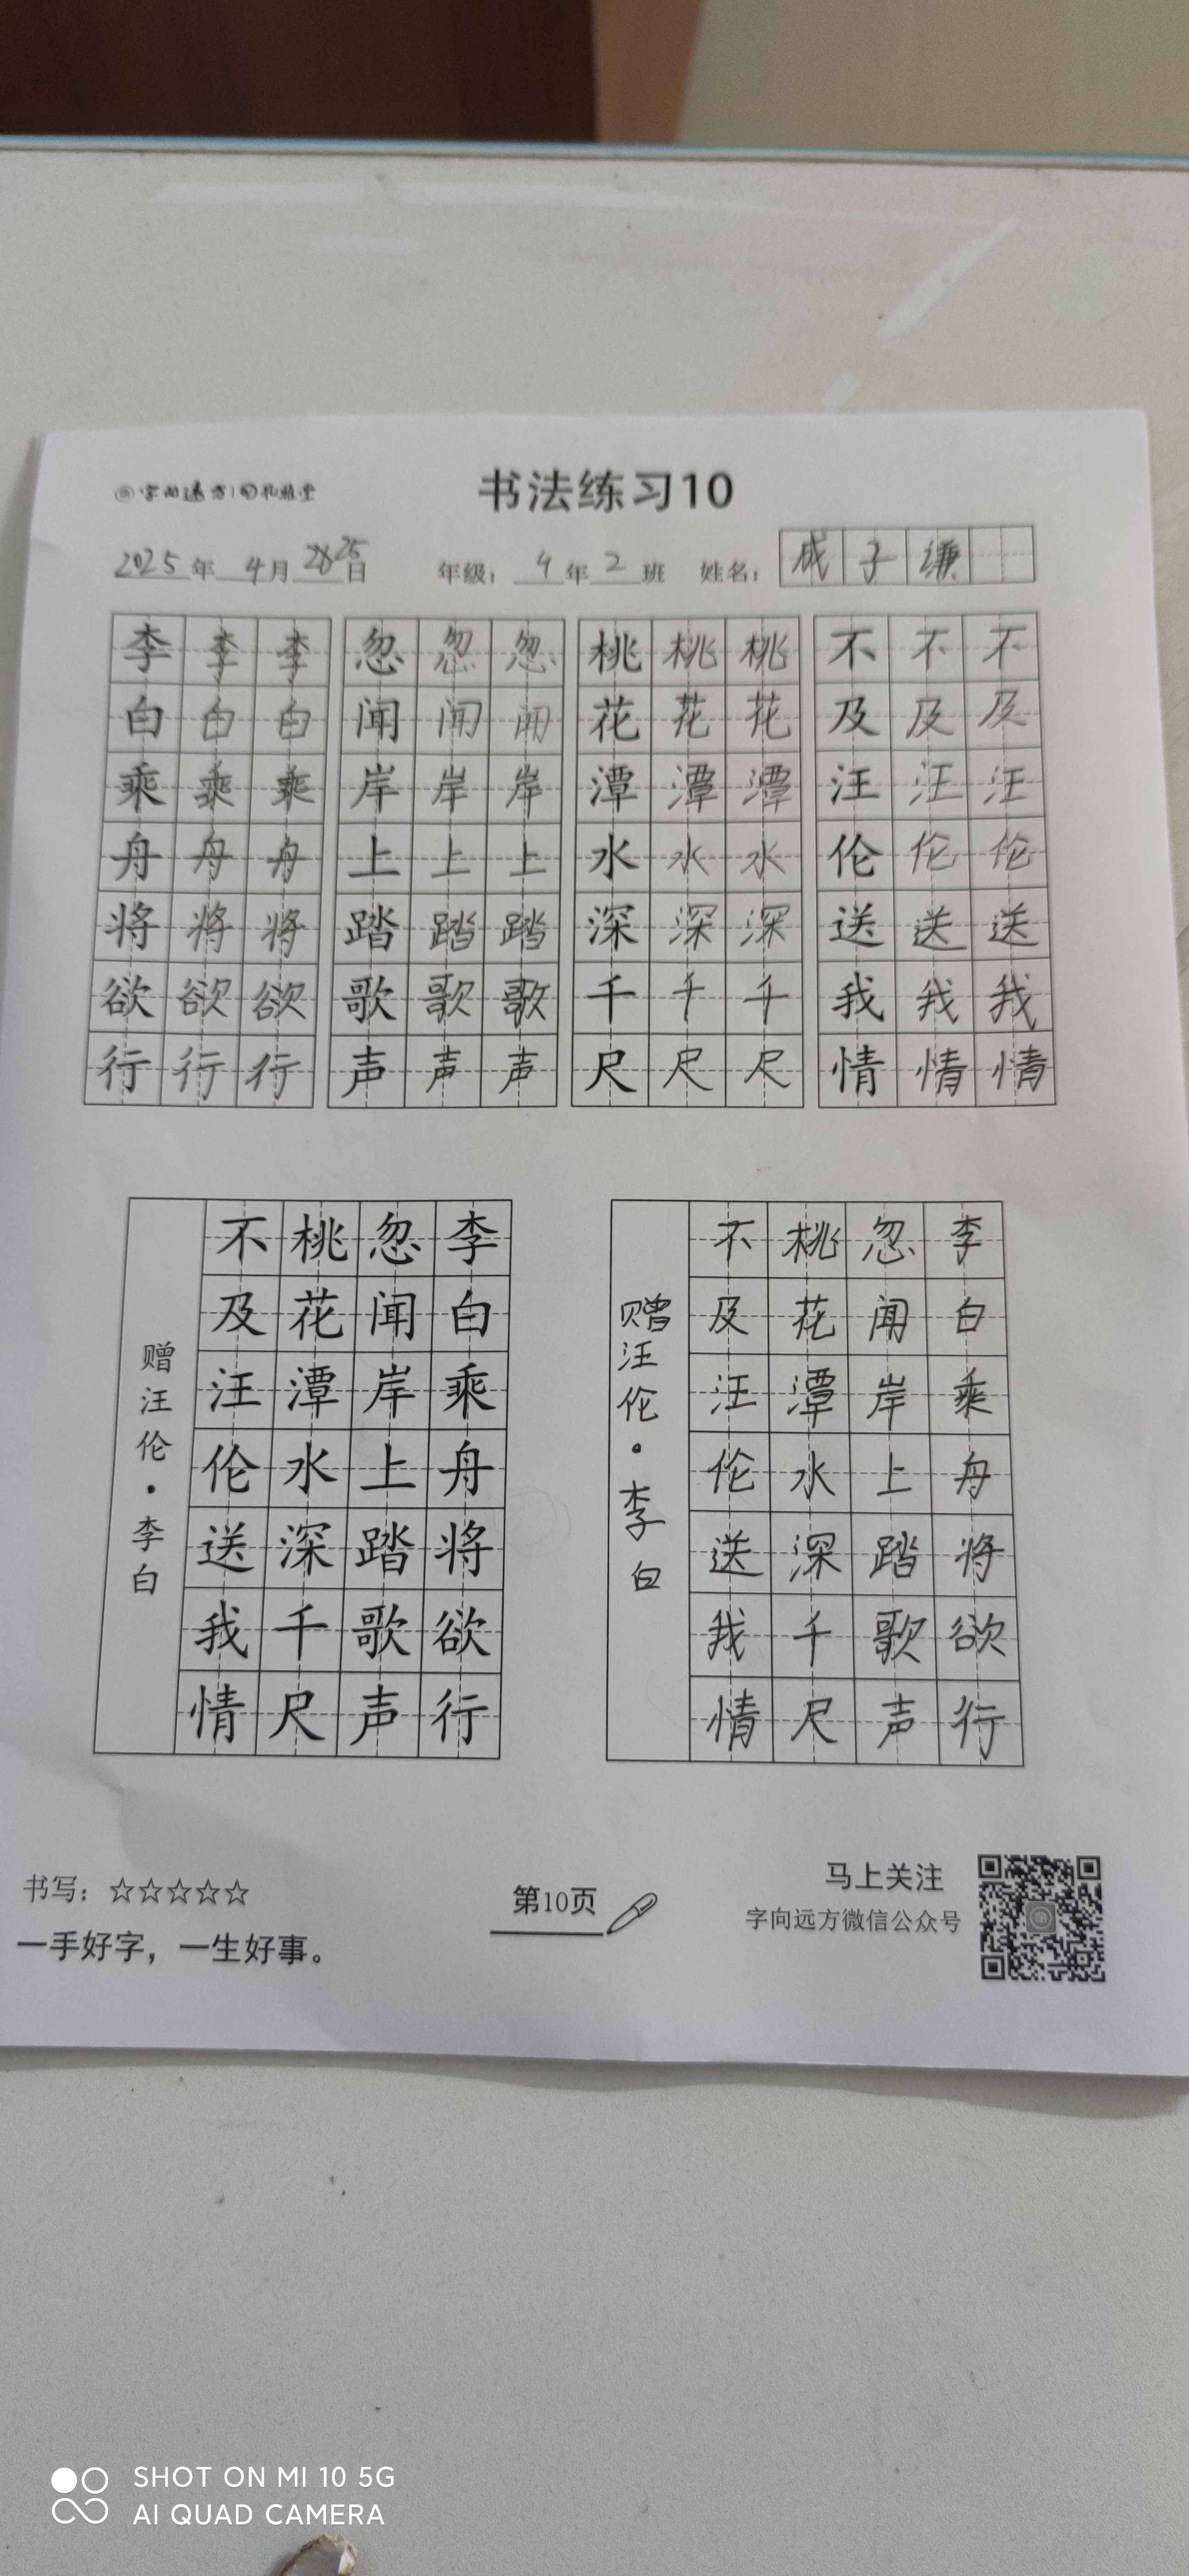 书法练习10
2025年 4月 25日 年级：4年2班 姓名：子谦
李李李 忽忽忽 桃桃桃 不不不
白白白 闻闻闻 花花花 及及及
乘乘乘 岸岸岸 潭潭潭 汪汪汪
舟舟舟 上上上 水水水 伦伦伦
将将将 踏踏踏 深深深 送送送
欲欲欲 歌歌歌 千千千 我我我
行行行 声声声 尺尺尺 情情情
李白乘舟将欲行
忽闻岸上踏歌声
桃花潭水深千尺
不及汪伦送我情
赠汪伦·李白
李白乘舟将欲行
忽闻岸上踏歌声
桃花潭水深千尺
不及汪伦送我情
赠汪伦·李白
书写：☆☆☆☆☆
一手好字，一生好事。
第10页
马上关注
字向远方微信公众号
SHOT ON MI 10 5G
AI QUAD CAMERA